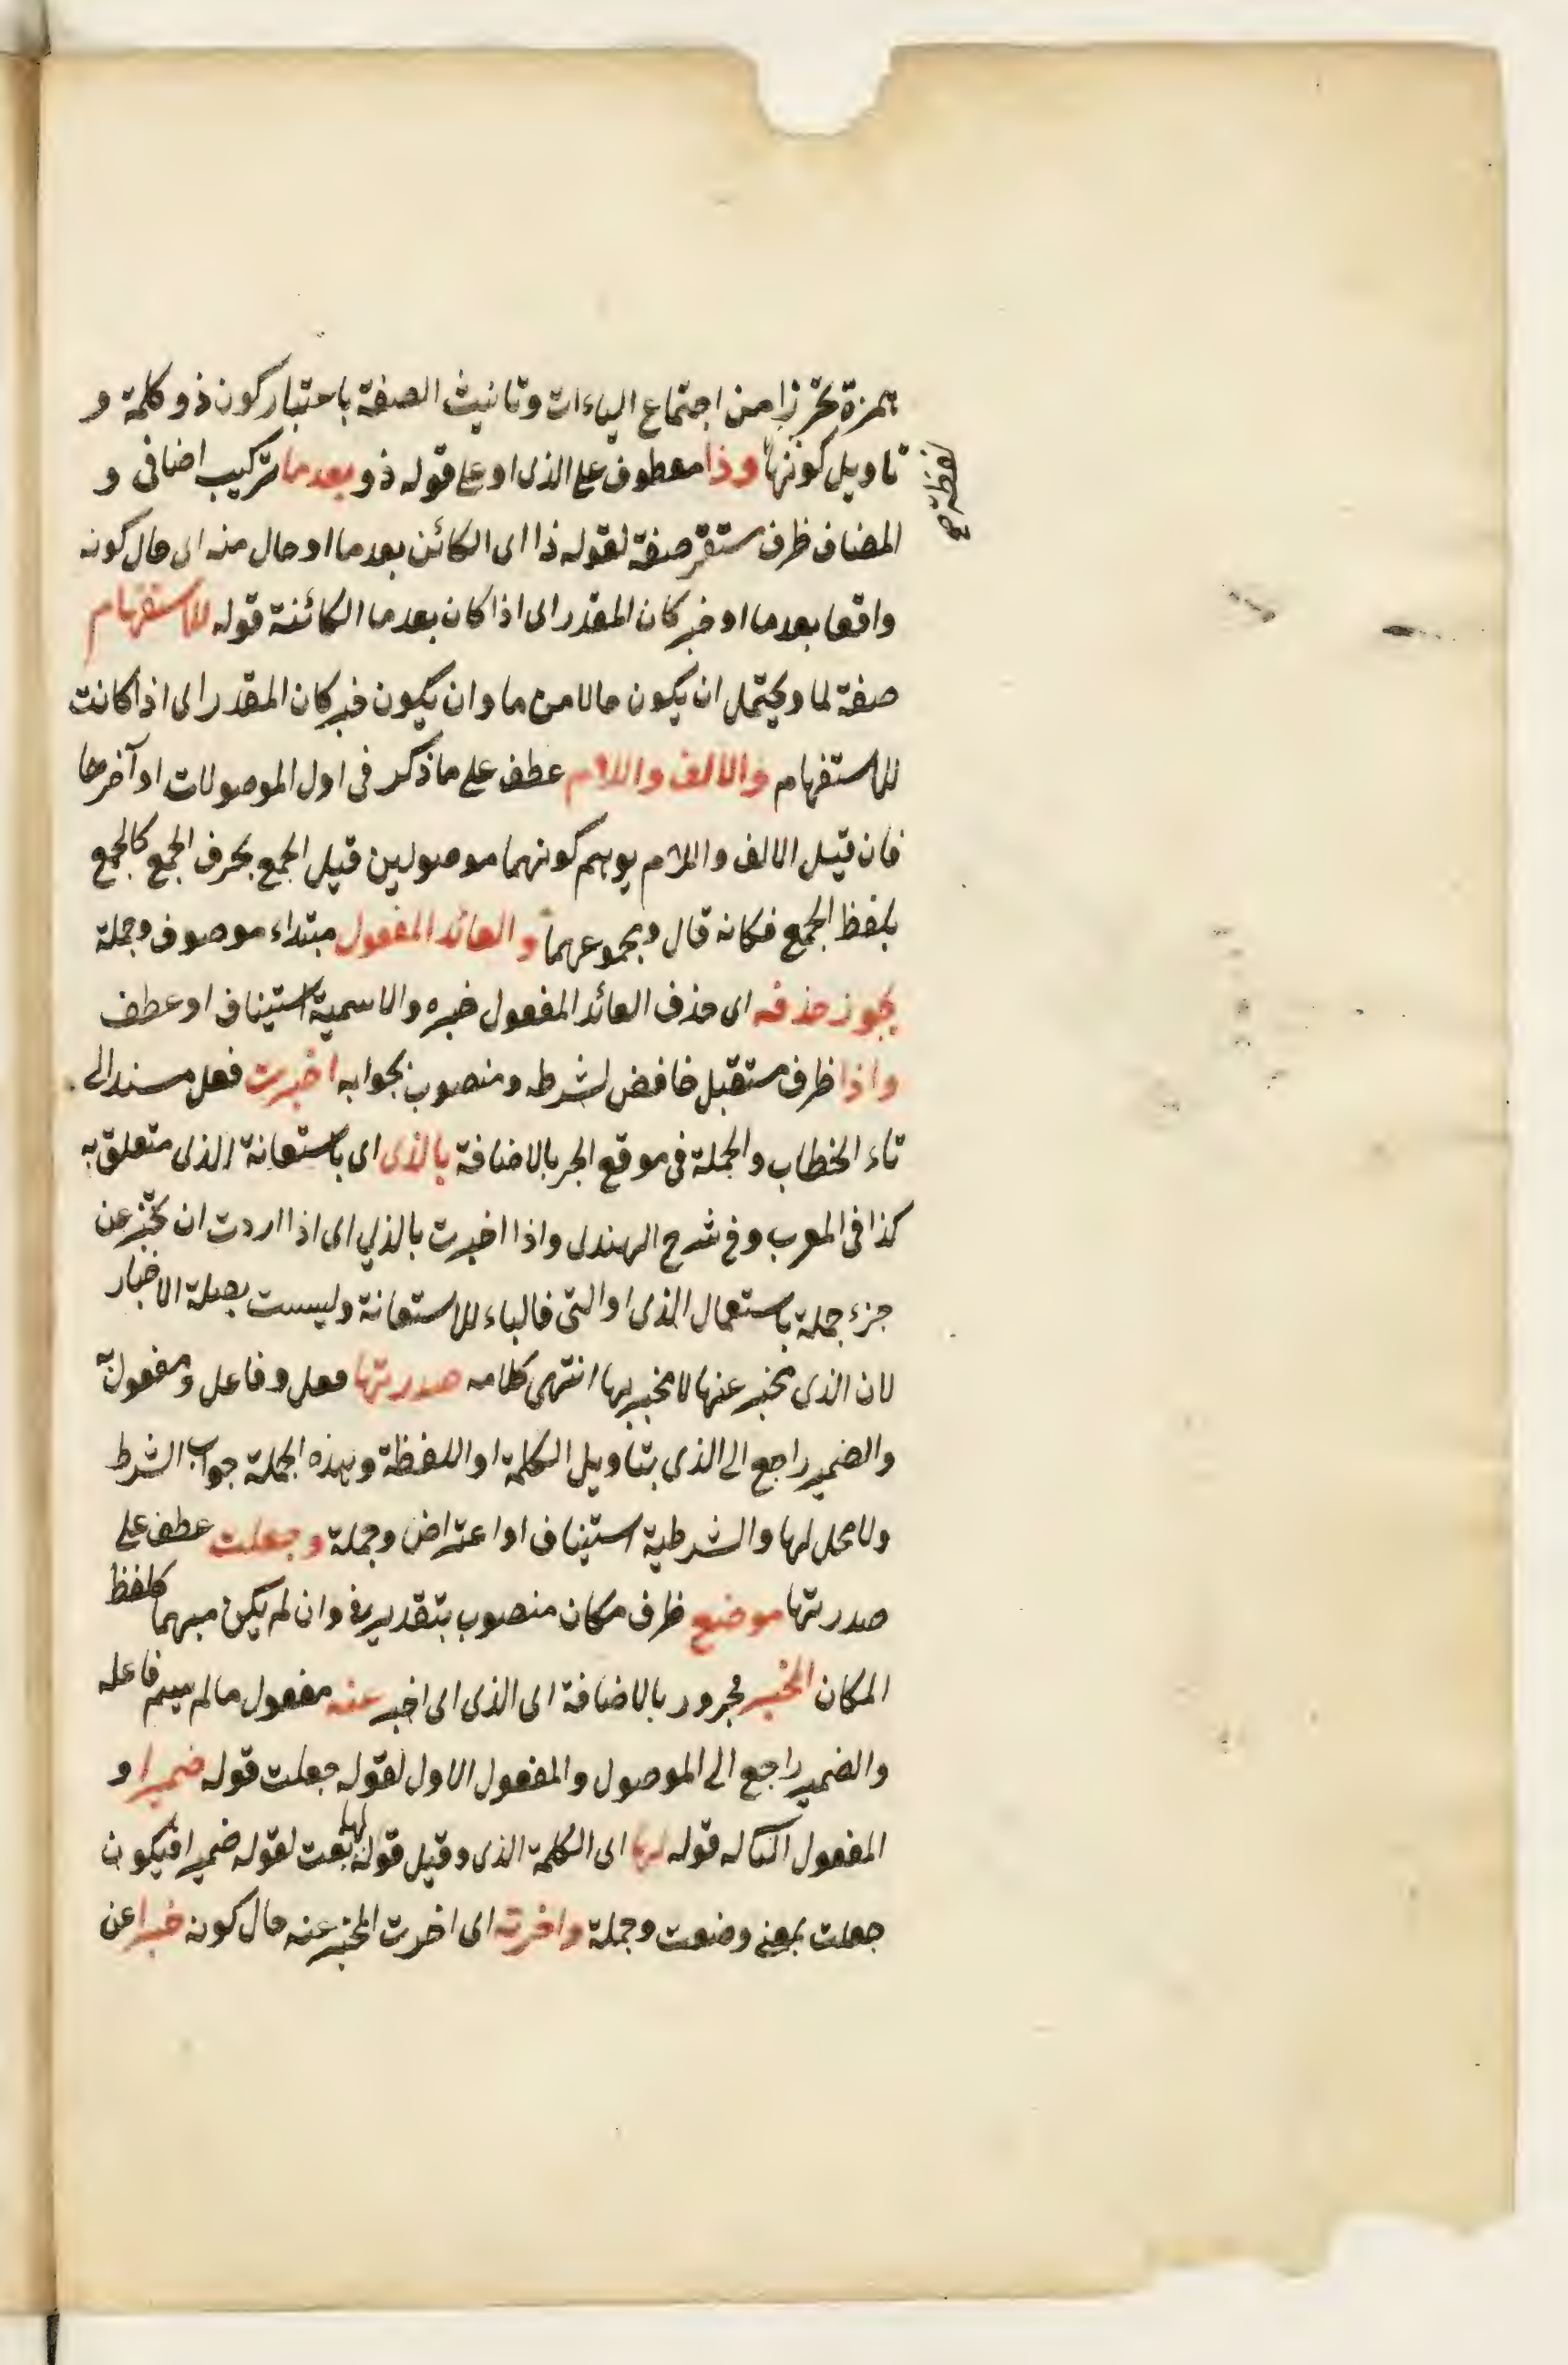 بهمزة تحرزا من اجتماع الياءات وتانيث الصفة باعتبار كون ذو كلمة و
تاويل كونها وذا معطوف على الذى او على قوله ذو بعد ما تركيب اضافى و
لفظة صح
المضاف ظرف مستقر صفة لقوله ذا اى الكائن بعد ما او حال منه اى حال كونه
واقعا بعد ما او خبر كان المقدر اى اذا كان بعد ما الكائنة قوله للاستفهام
صفة لما ويحتمل ان يكون حالا من ما وان يكون خبر كان المقدر اى اذا كانت
للاستفهام والالف واللام عطف على ما ذكر فى اول الموصولات او آخرها
فان قيل الالف واللام يوهم كونهما موصولين قيل الجمع بحرف الجمع كالجمع
بلفظ الجمع فكانه قال ومجموعهما والعائد المفعول مبتداء موصوف وجملة
يجوز حذفه اى حذف العائد المفعول خبره والاسمية استيناف او عطف
واذا ظرف مستقبل خافض لشرطه ومنصوب بجوابه اخبرت فعل مسند الى
تاء الخطاب والجملة فى موقع الجر بالاضافة بالذى اى باستعانة الذى متعلق به
كذا فى المعرب وفى شرح الهندى واذا اخبرت بالذي اى اذا اردت ان تخبر عن
جزء جملة باستعمال الذى او التى فالباء للاستعانة وليست بصلة الاخبار
لان الذى تخبر عنها لا مخبر بها انتهى كلامه صدرتها فعل وفاعل ومفعول به
والضمير راجع الى الذى بتاويل الكلمة او اللفظة وهذه الجملة جواب الشرط
ولا محل لها والشرطية استيناف او اعتراض وجملة وجعلت عطف على
صدرتها موضع ظرف مكان منصوب بتقدير فى وان لم يكن مبهما كلفظ
المكان المخبر مجرور بالاضافة اى الذى اى اخبر عنه مفعول ما لم يسم فاعله
والضمير راجع الى الموصول والمفعول الاول لقوله جعلت قوله ضميرا و
المفعول الثانى له قوله لها اى الكلمة الذى وقيل قوله لها نعت لقوله ضميرا فيكون
جعلت بمعنى وضعت وجملة واخرته اى اخرت المخبر عنه حال كونه خبرا عن